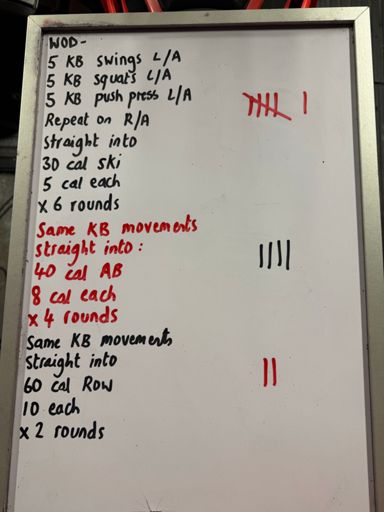 WOD-
5 KB swings L/A
5 KB squats L/A
5 KB push press L/A
Repeat on R/A
Straight into
30 cal ski
5 cal each
x 6 rounds
Same KB movements
straight into:
40 cal AB
8 cal each
x 4 rounds
Same KB movements
Straight into
60 cal Row
10 each
x 2 rounds